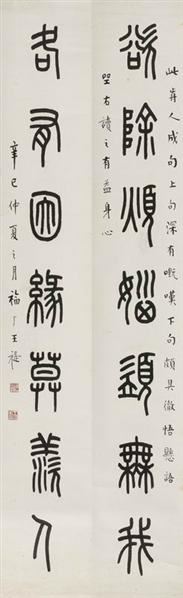 此弃人成句上句深有慨嘆下句頗具徹悟懸語
坐右讀之有益身心
欲除煩惱須無我
各有因緣莫羨人
辛巳仲夏之月福厂王禔